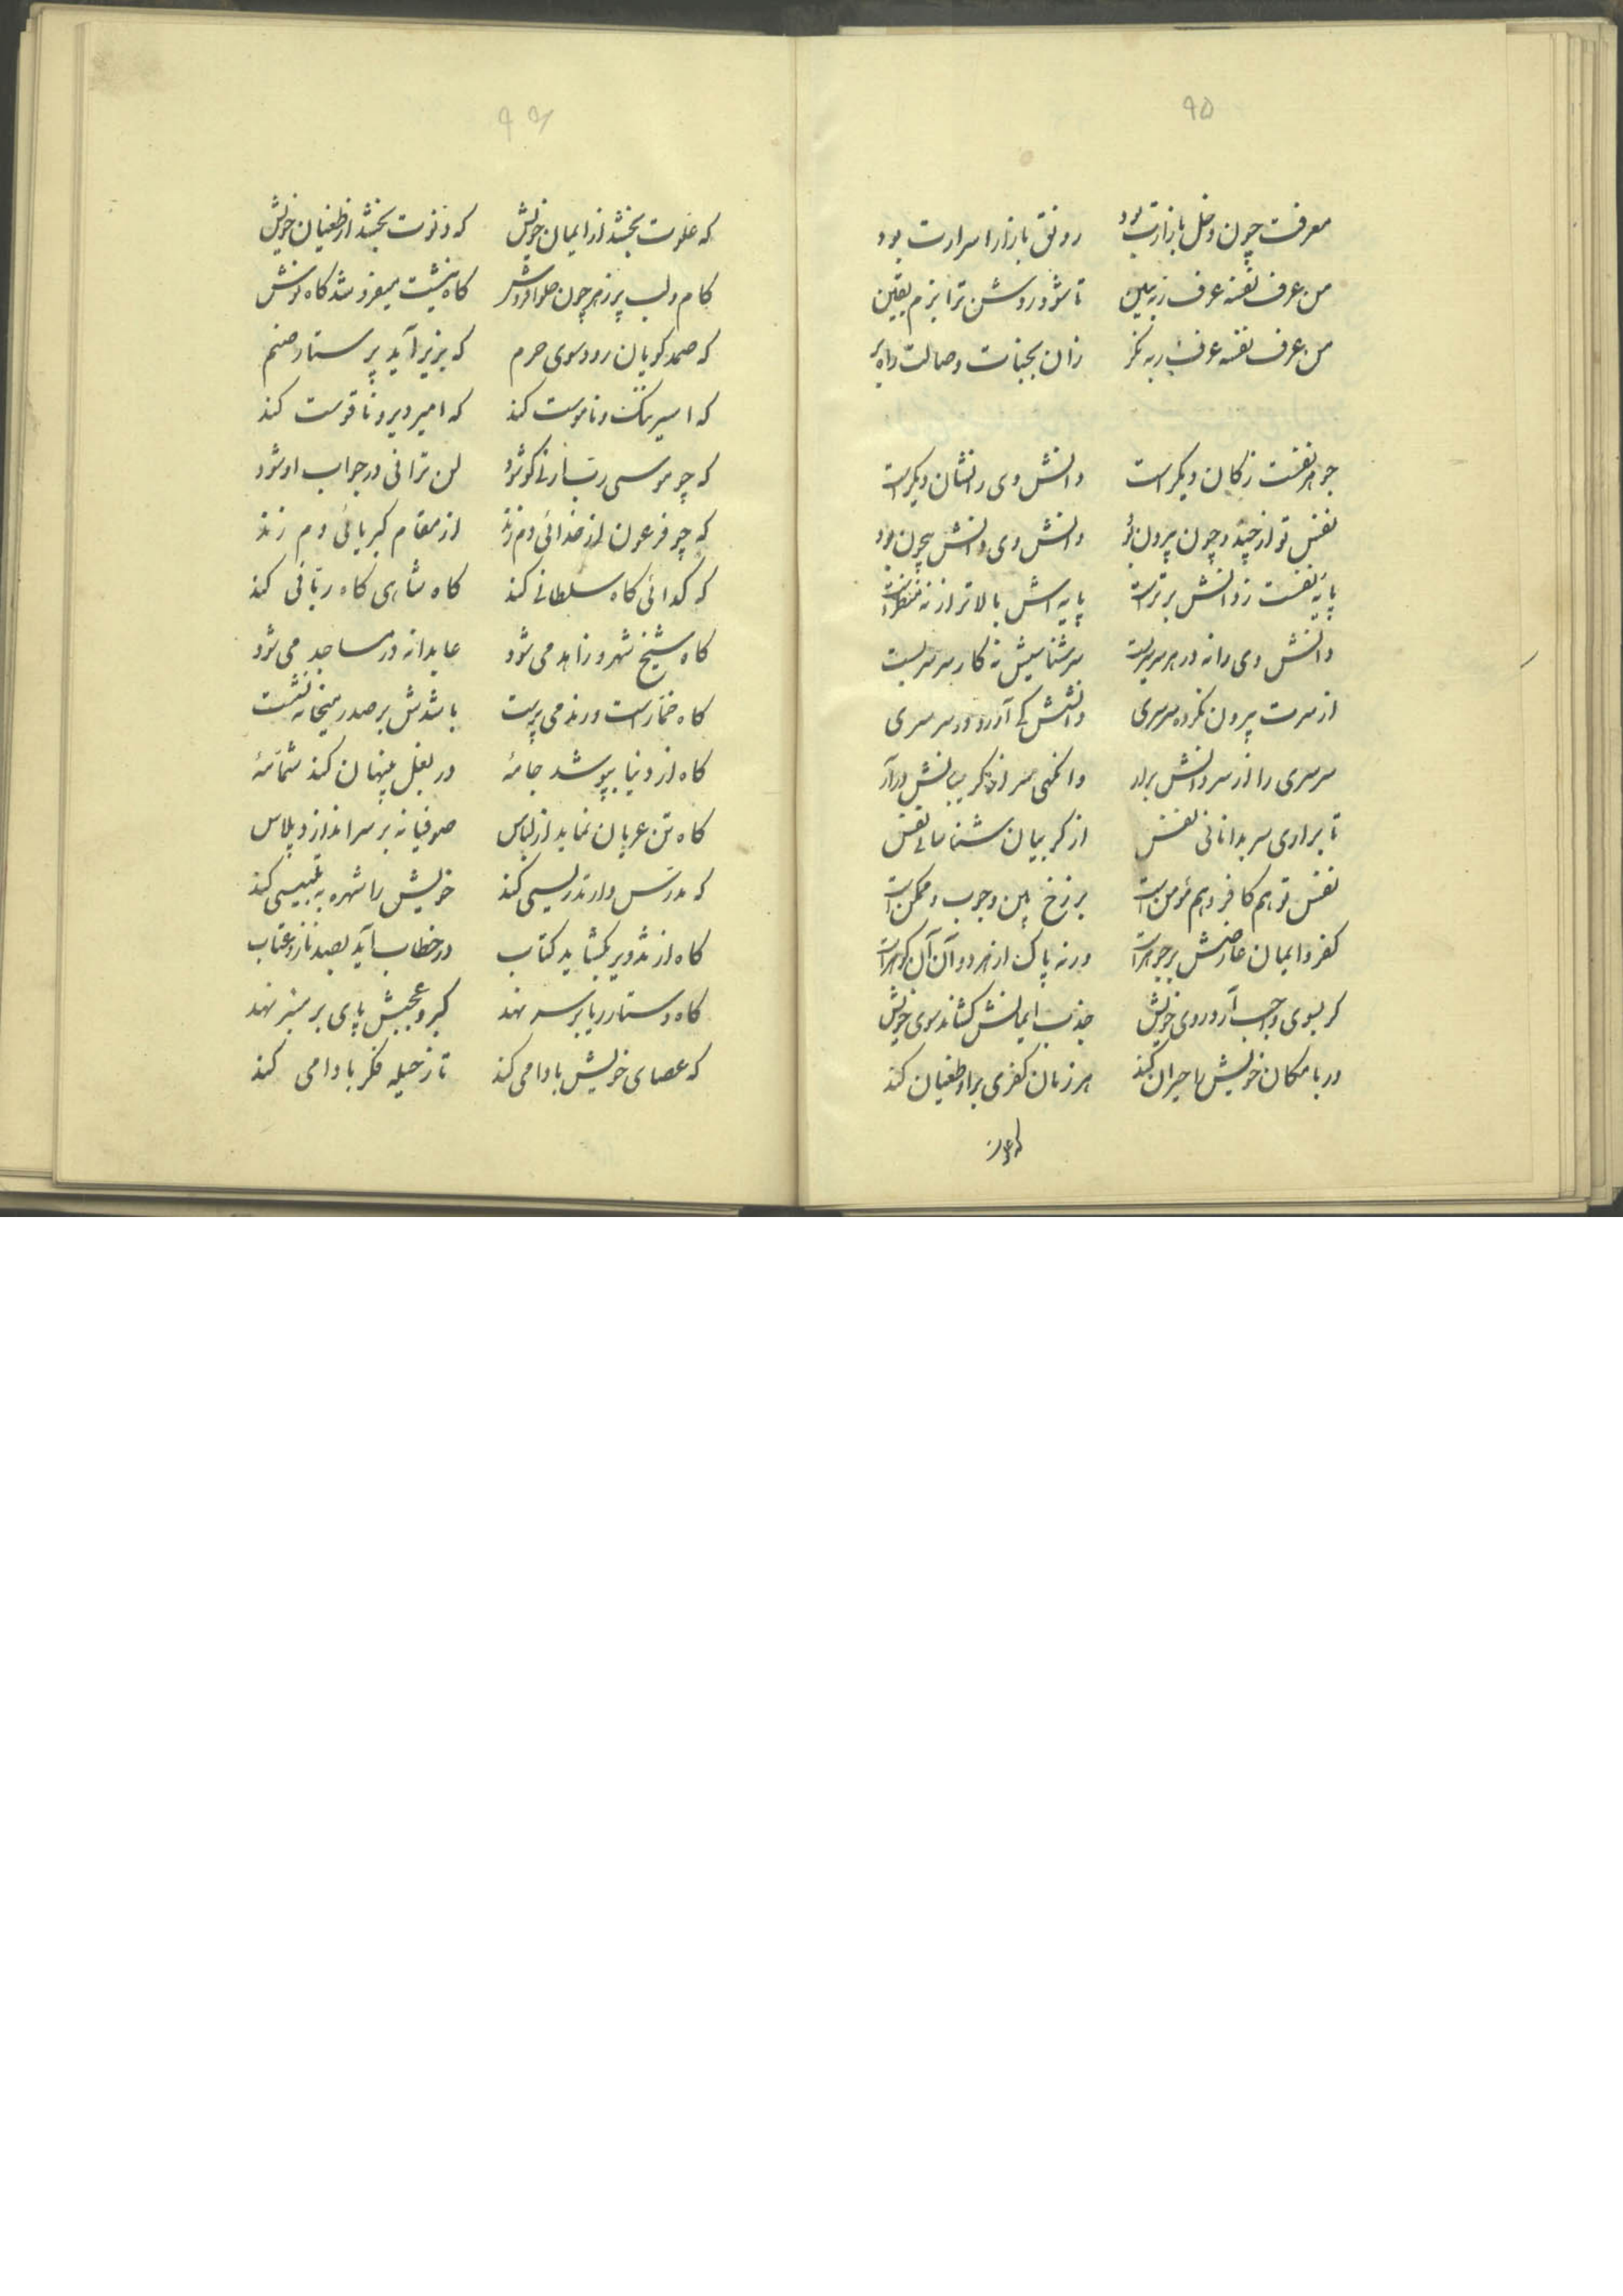 ۹۵
معرفت چون دخل بازارت بود رونق بازار اسرارت بود
من عرف نفسه عرف ربه ببین تا شود روشن ترا بزم یقین
من عرف نفسه عرف ربه نگر زان بجنات وصالت راه بر
جوهر نفست ز کان دیگر است دانش وی را نشان دیگر است
نفس تو از چند و چون بیرون بود دانش وی دانش بیچون بود
پایه نفست ز دانش برتر است پایه اش بالاتر از نه منظر است
دانش وی را نه در هر سر سریست سرشناسیش نه کار سرسریست
از سرت بیرون نکرده سرسری دانشش کی آورد در سر سری
سرسری را از سر دانش برار وانگهی سر از گریبانش درآر
تا براری سر بدانائی نفس از گریبان شناسائی نفس
نفس تو هم کافر و هم مؤمن است برزخ بین وجوب و ممکن است
کفر و ایمان عارضش بر جوهر است ورنه پاک از هر دو آن آن گوهر است
گر بسوی واجب آرد روی خویش جذب ایمانش کشاند سوی خویش
ور بامکان خویش را حیران کند هر زمان کفری برو طغیان کند
۹۶
که علوت بخشد از ایمان خویش که دنوت بخشد از طغیان خویش
کام و لب پر زهر چون حلوا فروش کاه نیشت میفروشد کاه نوش
که صمد کویان رود سوی حرم که بزیر آید پرستار صنم
که اسیر ننک و ناموست کند که امیر دیر و ناقوست کند
که چو موسی رب ارنی کو شود لن ترانی در جواب او شود
که چو فرعون از خدائی دم زند از مقام کبریائی دم زند
که کدائی کاه سلطانی کند کاه شاهی کاه ربانی کند
کاه شیخ شهر و زاهد می شود عابدانه در مساجد می شود
کاه خمار است و رند می پرست باشدش بر صدر میخانه نشست
کاه از دیبا بپوشد جامهٔ در بغل پنهان کند شمامهٔ
کاه تن عریان نماید از لباس صوفیانه بر سر اندازد پلاس
که مدرس وار تدریسی کند خویش را شهره به تلبیسی کند
کاه از تذویر بکشاید کتاب در خطاب آید بصد ناز و عتاب
کاه دستار ریا بر سر نهد کبر و عجبش پای بر منبر نهد
که عصای خویش بادامی کند تا ز حیله فکر بادامی کند